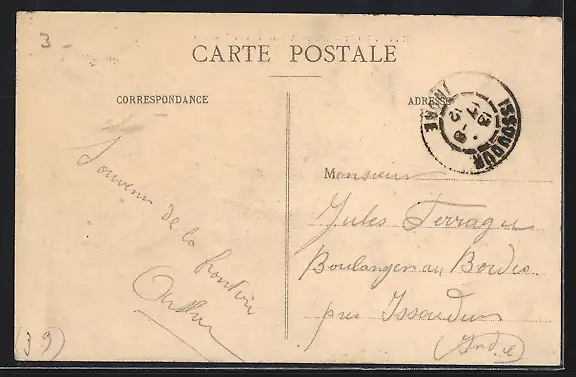 3
CARTE POSTALE
CORRESPONDANCE
ADRESSE
ISSOUDUN
INDRE
Monsieur
Jules Ferragu
Boulanger au Bordes
près Issoudun
(Indre)
Souvenir de la frontière
Arthur
(39)